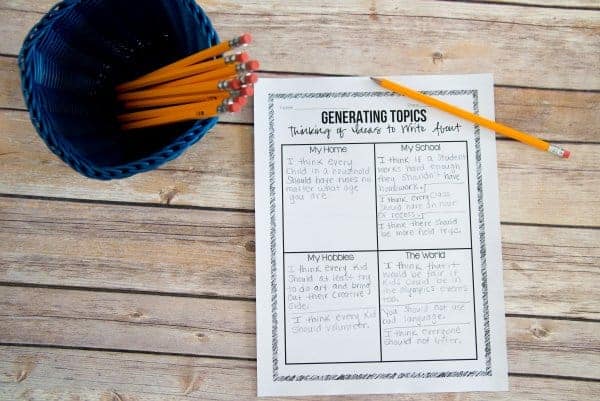 Name:
GENERATING TOPICS
Thinking of Ideas to Write About
My Home
I think every
child in a household
Should have rules no
matter what age
you are
My School
I think if a Student
works hard enough
they Shouldn't have
homework.
I think every class
Should have an hour
of recess.
I think there should
be more field trips.
My Hobbies
I think every Kid
Should at least try
to do art and bring
out their creative
side.
I think every Kid
Should volunteer.
The World
I think that it
would be fair if
Kids could be in
the olympics events
too.
You should not use
bad language.
I think everyone
should not litter.